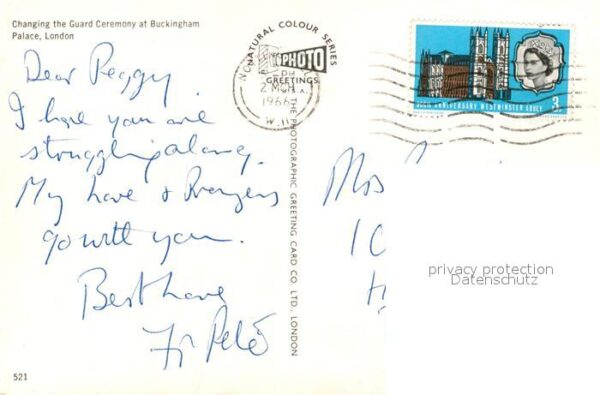 Changing the Guard Ceremony at Buckingham
Palace, London
Dear Peggy.
I hope you are
struggling along.
My love & Prayers
go with you.
Best love
Fr Peter
521
NATURAL COLOUR SERIES
PHOTO
GREETINGS
THE PHOTOGRAPHIC GREETING CARD CO. LTD., LONDON
2 MCH
1966
900TH ANNIVERSARY WESTMINSTER ABBEY
3
privacy protection
Datenschutz